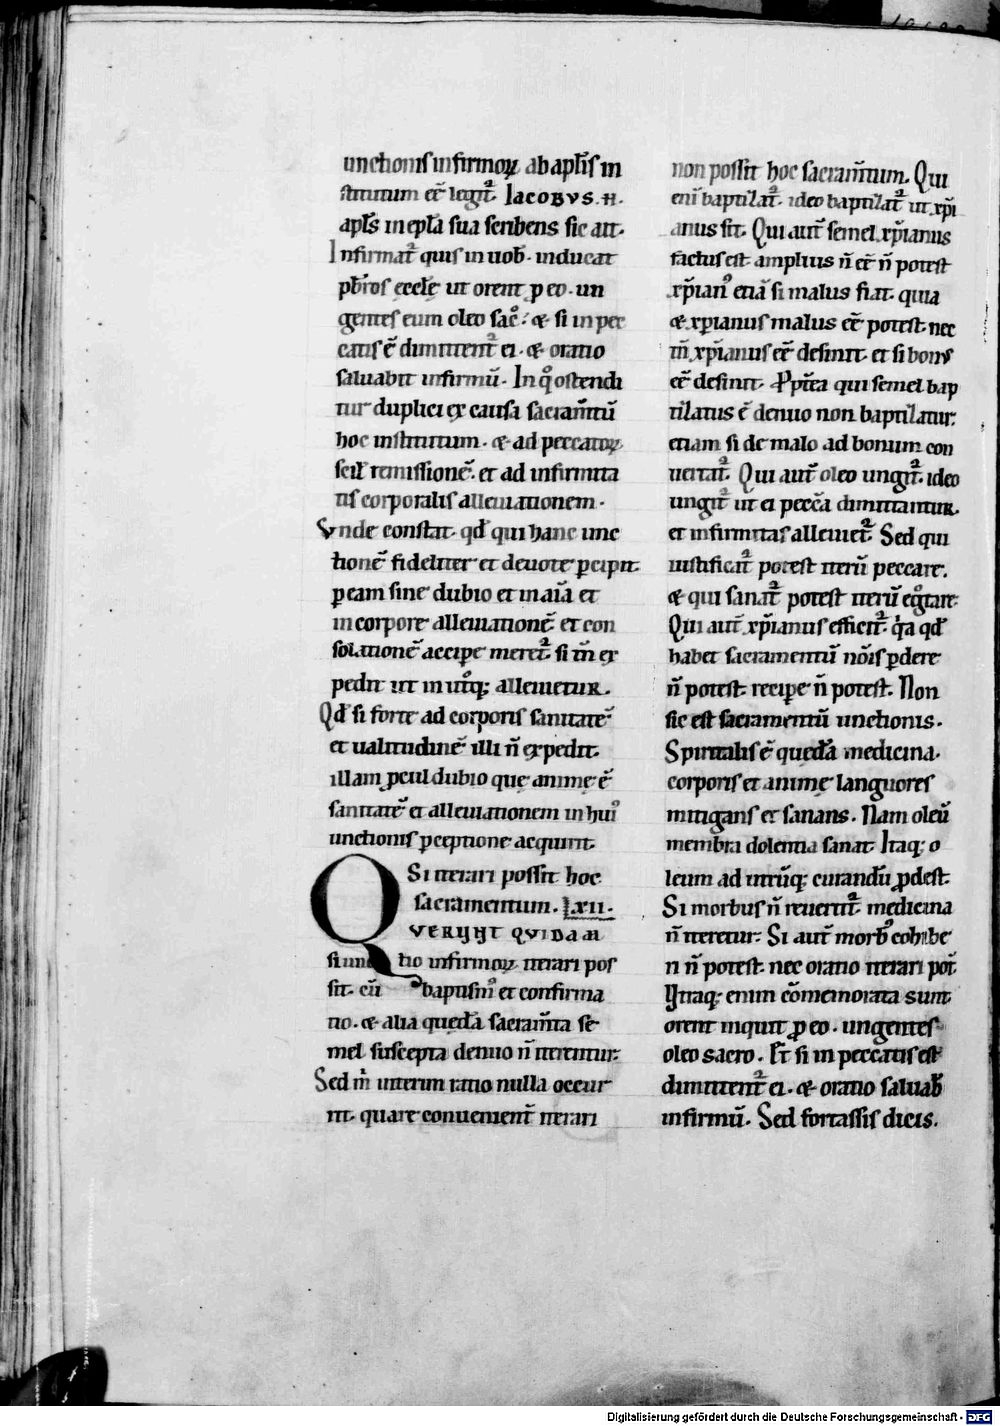 unctionis infirmoꝝ ab apl̃is in
stitutum eẽ legit᷑. Iacobvs .n.
apl̃s in epl̃a sua scribens sic ait.
Infirmat᷑ quis in uob̃. inducat
pb̃ros eccl̃ę ut orent ꝑ eo. un
gentes eum oleo sac̊. & si in pec
catis ẽ dimittent᷑ ei. & oratio
saluabit infirmũ. In q̊ ostendi
tur duplici ex causa sacram̃tũ
hoc institutum. & ad peccatoꝝ
scił remissionẽ. et ad infirmita
tis corporalis alleuiationem.
Vnde constat. qđ qui hanc unc
tionẽ fideliter et deuote ꝑcipit.
ꝑ eam sine dubio et in aĩa et
in corpore alleuiationẽ et con
solationẽ accipe meret᷑. si m̃ ex
pedit ut in utroq; alleuietur.
Qđ si forte ad corporis sanitatẽ
et ualitudinẽ illi ñ expedit.
illam ꝓcul dubio que animę ẽ
sanitatẽ et alleuiationem in hui᷒
unctionis ꝑceptione acquirit.
Si iterari possit hoc
sacramentum. LXII.
Qvervnt qvidam
si unctio infirmoꝝ iterari pos
sit. cũ baptism᷒ et confirma
tio. & alia quędã sacram̃ta se
mel suscepta denuo ñ iterentur.
Sed m̃ interim ratio nulla occur
rit. quare conuenient̃ iterari
non possit hoc sacram̃tum. Qui
eni̅ baptizat᷑. ideo baptizat᷑ ut xp̃i
anus sit. Qui aut̃ semel xp̃ianus
factus est. amplius ñ eẽ ñ potest
xp̃ian᷒ etiã si malus fiat. quia
& xp̃ianus malus eẽ potest. nec
m̃ xp̃ianus eẽ desinit. et si bon᷒
eẽ desinit. Ꝓpt̃ea qui semel bap
tizatus ẽ denuo non baptizatur.
etiam si de malo ad bonum con
uertat᷑. Qui aut̃ oleo ungit᷑. ideo
ungit᷑ ut ei pecc̃a dimittantur.
et infirmitas alleuiet᷑. Sed qui
iustificat᷑ potest iterũ peccare.
& qui sanat᷑ potest iterũ eg̊tare.
Qui aut̃ xp̃ianus efficit᷑. q̃a qđ
habet sacramentũ nõis ꝑdere
ñ potest. recipe ñ potest. Non
sic est sacramentũ unctionis.
Spiritalis ẽ quędã medicina.
corporis et animę languores
mitigans et sanans. Nam oleũ
membra dolentia sanat. Itaq; o
leum ad utrũq; curandũ ꝓdest.
Si morbus ñ reuertit᷑. medicina
ñ iteretur. Si aut̃ morb᷒ cohibe
ri ñ potest. nec oratio iterari pot̃.
Vtraq; enim cõmemorata sunt.
orent inquit ꝑ eo. ungentes
oleo sacro. Et si in peccatis est
dimittent᷑ ei. & oratio saluab̃
infirmũ. Sed fortassis dicis.
Digitalisierung gefördert durch die Deutsche Forschungsgemeinschaft - DFG